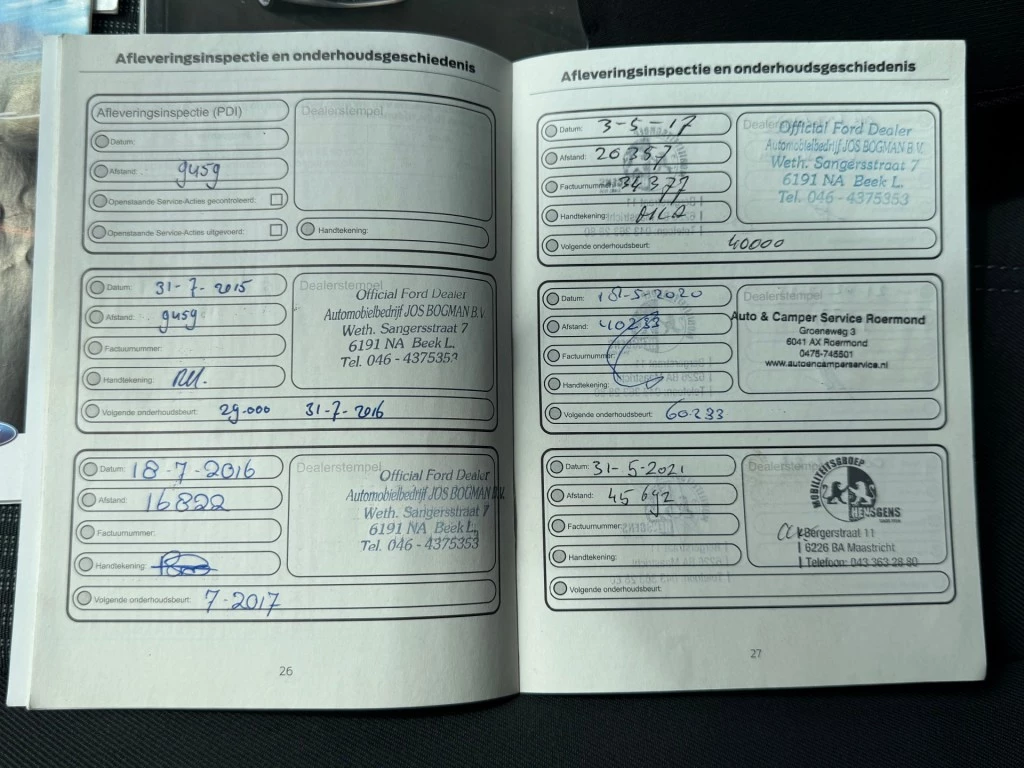 Afleveringsinspectie en onderhoudsgeschiedenis
Afleveringsinspectie (PDI)
Dealerstempel
Datum:
Afstand: 9459
Openstaande Service-Acties gecontroleerd:
Openstaande Service-Acties uitgevoerd:
Handtekening:
Datum: 31-7-2015
Afstand: 9459
Factuurnummer:
Handtekening:
Volgende onderhoudsbeurt: 29.000 31-7-2016
Dealerstempel
Official Ford Dealer
Automobielbedrijf JOS BOGMAN B.V.
Weth. Sangersstraat 7
6191 NA Beek L.
Tel. 046 - 4375353
Datum: 18-7-2016
Afstand: 16822
Factuurnummer:
Handtekening:
Volgende onderhoudsbeurt: 7-2017
Dealerstempel
Official Ford Dealer
Automobielbedrijf JOS BOGMAN B.V.
Weth. Sangersstraat 7
6191 NA Beek L.
Tel. 046 - 4375353
26
Afleveringsinspectie en onderhoudsgeschiedenis
Datum: 3-5-17
Afstand: 20357
Factuurnummer: 34377
Handtekening:
Volgende onderhoudsbeurt: 40000
Official Ford Dealer
Automobielbedrijf JOS BOGMAN B.V.
Weth. Sangersstraat 7
6191 NA Beek L.
Tel. 046 - 4375353
Datum: 18-5-2020
Afstand: 40233
Factuurnummer:
Handtekening:
Volgende onderhoudsbeurt: 60.233
Dealerstempel
Auto & Camper Service Roermond
Groeneweg 3
6041 AX Roermond
0475-745501
www.autoencamperservice.nl
Datum: 31-5-2021
Afstand: 45692
Factuurnummer:
Handtekening:
Volgende onderhoudsbeurt:
MOBILITEITSGROEP
HENSGENS
Bergerstraat 11
6226 BA Maastricht
Telefoon: 043 363 28 80
27